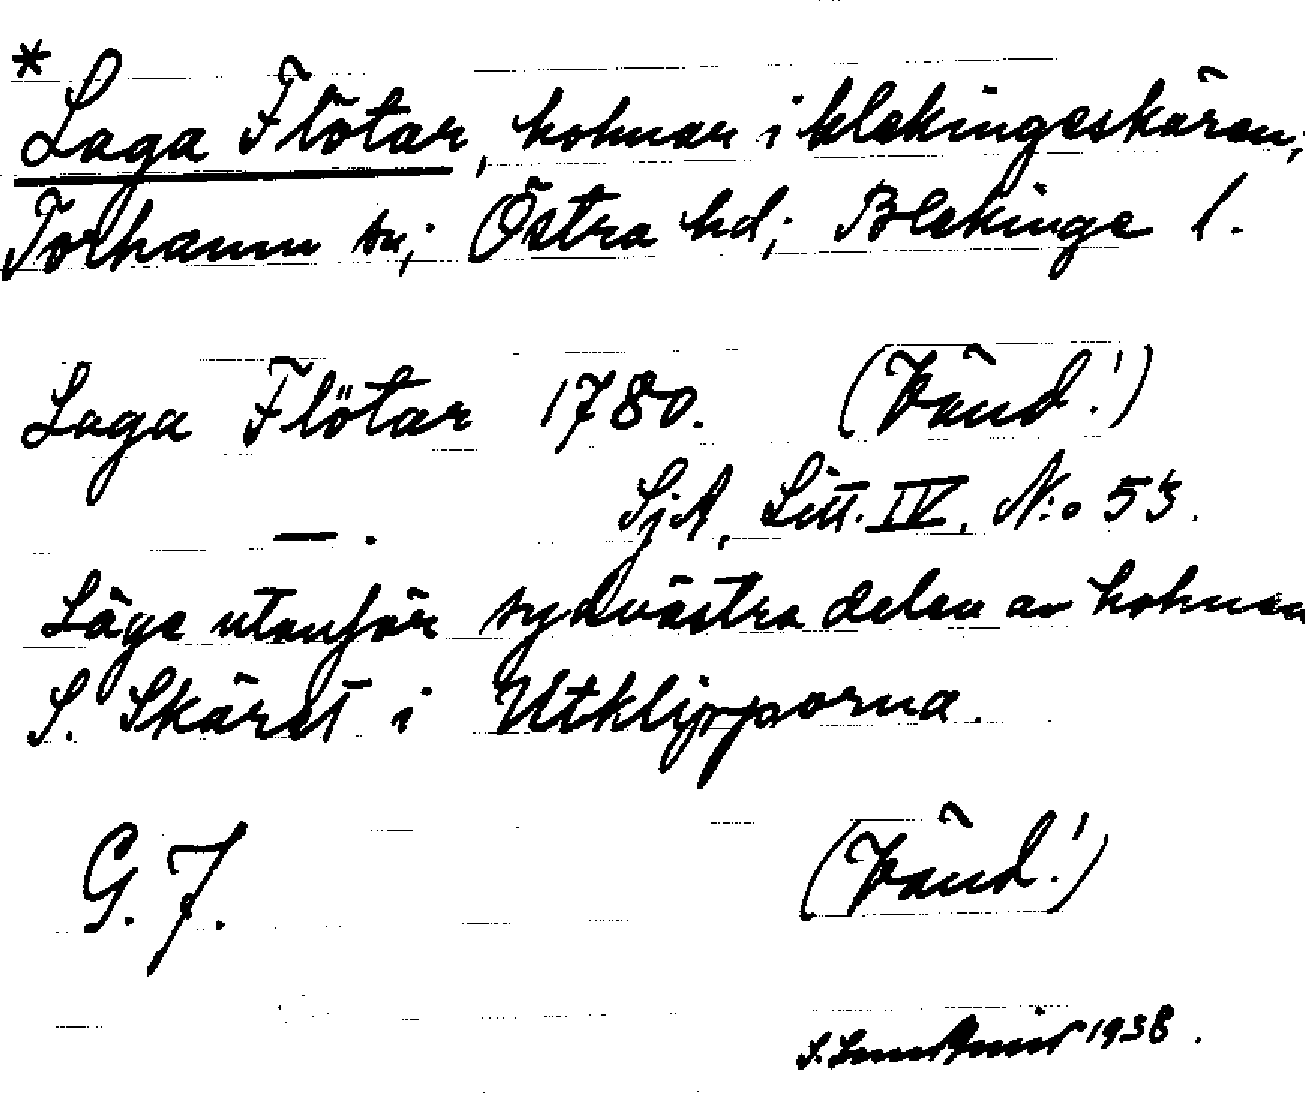 * Laga Flötar, holmar i blekingeskären;
Torhamn sn; Östra hd; Blekinge l.
Laga Flötar 1780. (Vänd!)
— . SjA, Litt. IV, N:o 53.
Läge utanför sydvästra delen av holmen
S. Skäret i Utklipporna.
G. F. (Vänd!)
S. 1938.